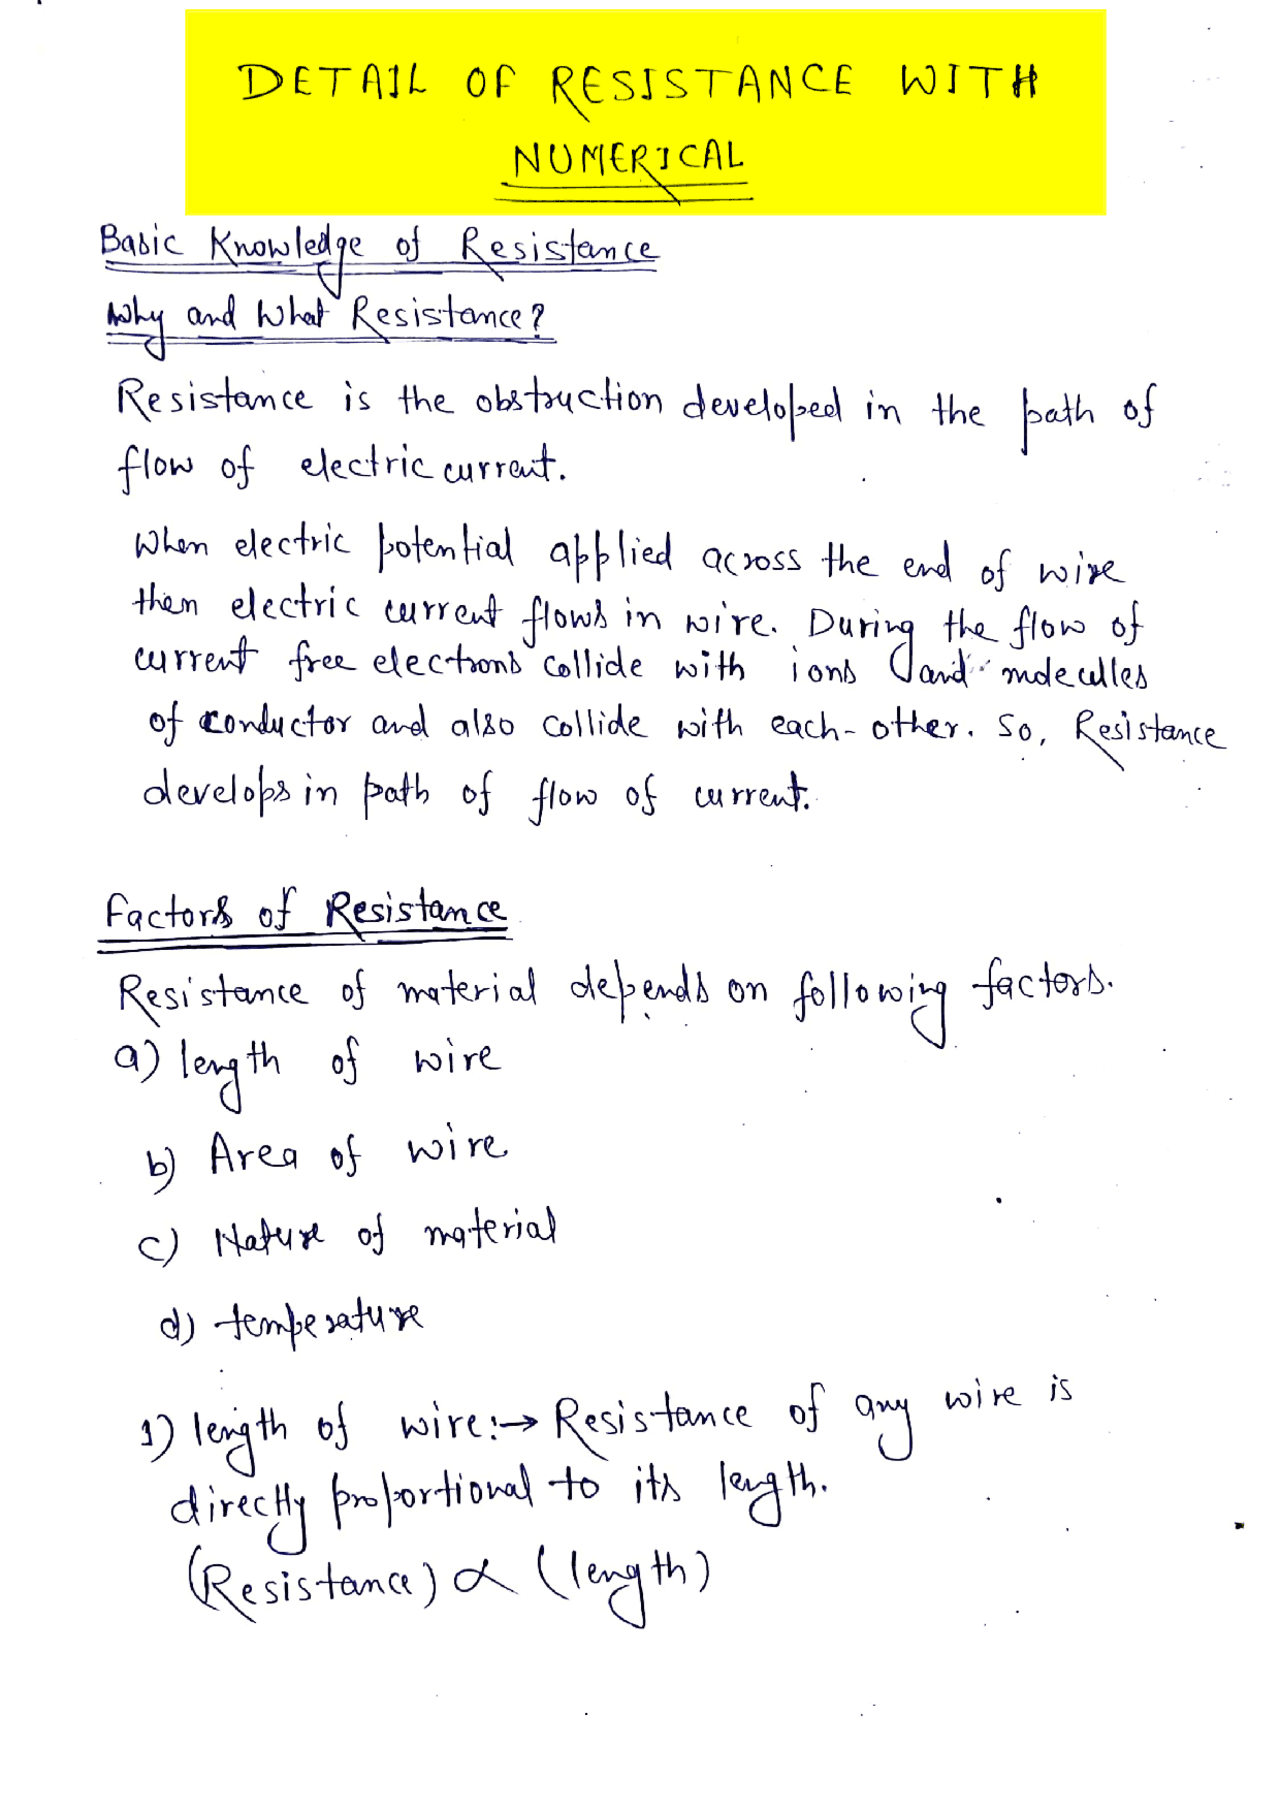 DETAIL OF RESISTANCE WITH
NUMERICAL
Basic Knowledge of Resistance
Why and What Resistance?
Resistance is the obstruction developed in the path of
flow of electric current.
When electric potential applied across the end of wire
then electric current flows in wire. During the flow of
current free electrons collide with ions and moleculles
of conductor and also collide with each-other. So, Resistance
develops in path of flow of current.
Factors of Resistance
Resistance of material depends on following factors.
a) length of wire
b) Area of wire
c) Nature of material
d) temperature
1) length of wire:→ Resistance of any wire is
directly proportional to its length.
(Resistance) ∝ (length)